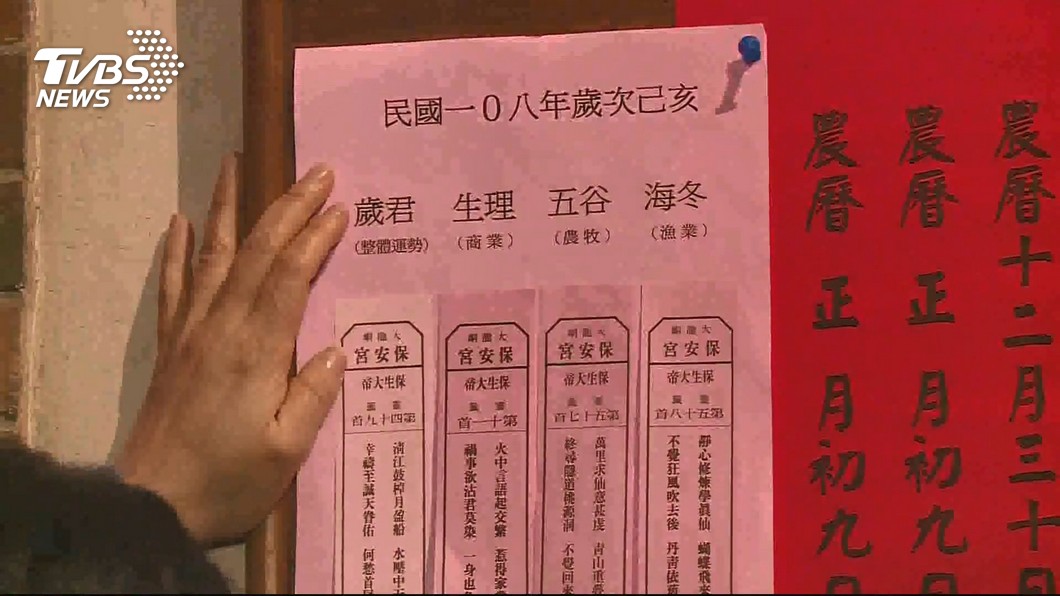 TVBS
NEWS
民國一０八年歲次己亥
歲君 生理 五谷 海冬
(整體運勢) (商業) (農牧) (漁業)
大龍峒
宮安保
帝大生保
靈籤
首九十四第
清江鼓棹月盈船
水壓中
幸禱至誠天眷佑
何愁首
大龍峒
宮安保
帝大生保
靈籤
首一十第
火中言語起交繁
惹得家
禍事欲沾君莫染
一身也
大龍峒
宮安保
帝大生保
靈籤
首七十五第
萬里求仙意甚虔
青山重
終尋隱道桃源洞
不覺回來
大龍峒
宮安保
帝大生保
靈籤
首八十五第
靜心修煉學真仙
蝴蝶飛來
不覺狂風吹去後
丹青依舊
農曆十二月三十
農曆正月初九日
農曆正月初九日